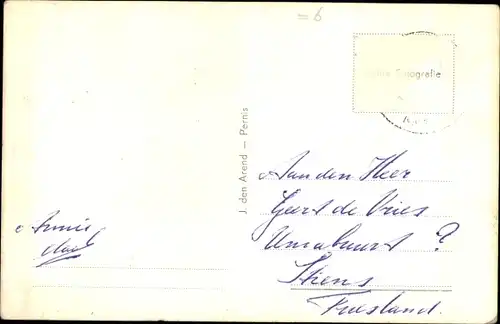 = 6
fotografie
J. den Arend — Pernis
Aan den Heer
Geert de Vries
?
Stiens
Friesland.